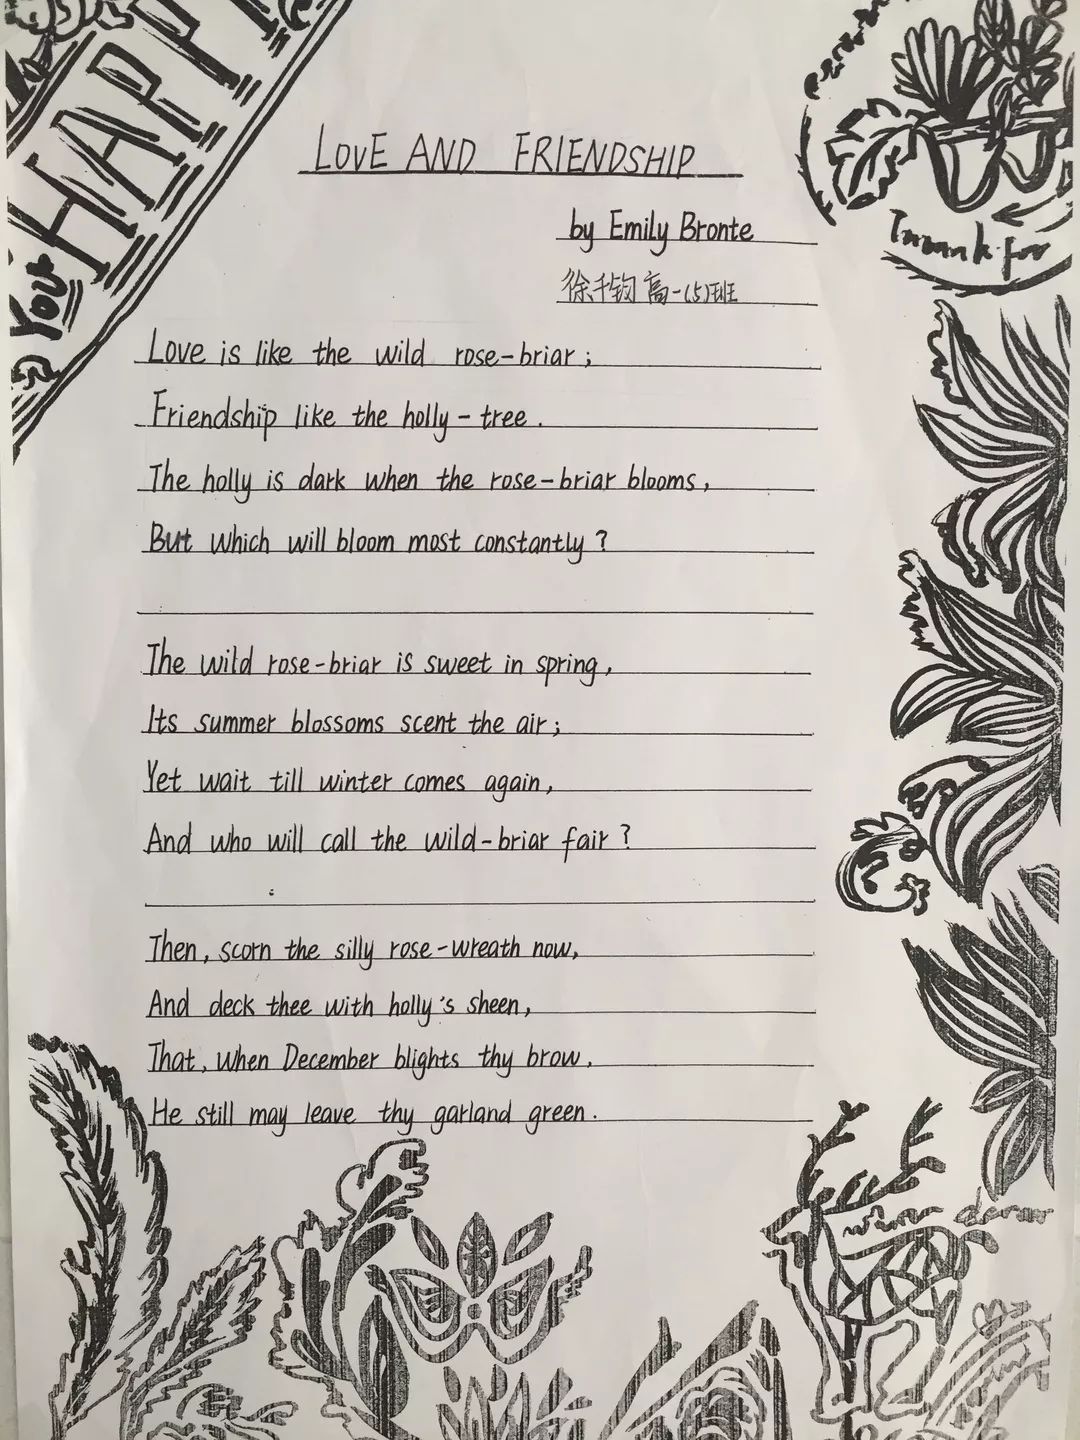 HAPPY
YOU
LOVE AND FRIENDSHIP
by Emily Bronte
徐千钧 高一(5)班
Love is like the wild rose-briar;
Friendship like the holly-tree.
The holly is dark when the rose-briar blooms,
But which will bloom most constantly?
The wild rose-briar is sweet in spring,
Its summer blossoms scent the air;
Yet wait till winter comes again,
And who will call the wild-briar fair?
Then, scorn the silly rose-wreath now,
And deck thee with holly's sheen,
That, when December blights thy brow,
He still may leave thy garland green.